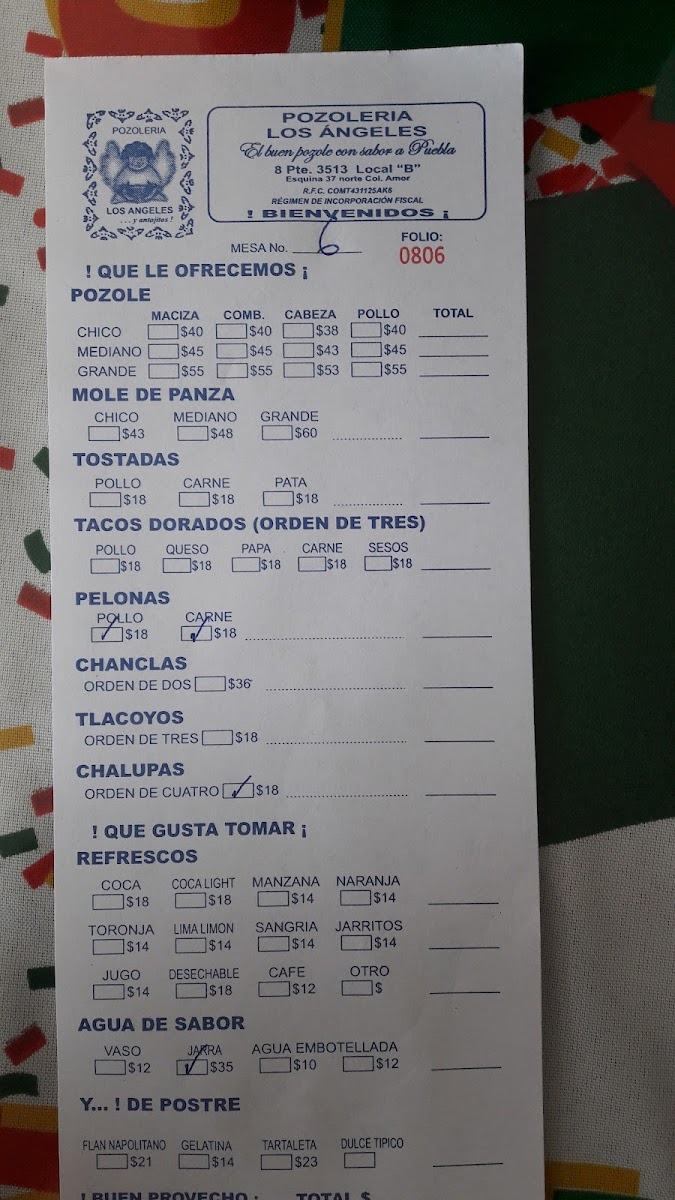 POZOLERIA
LOS ANGELES
... y antojitos !
POZOLERIA
LOS ÁNGELES
El buen pozole con sabor a Puebla
8 Pte. 3513 Local "B"
Esquina 37 norte Col. Amor
R.F.C. COMT431125AK6
RÉGIMEN DE INCORPORACIÓN FISCAL
! BIENVENIDOS ¡
MESA No. 6
FOLIO:
0806
! QUE LE OFRECEMOS ¡
POZOLE
MACIZA COMB. CABEZA POLLO TOTAL
CHICO $40 $40 $38 $40
MEDIANO $45 $45 $43 $45
GRANDE $55 $55 $53 $55
MOLE DE PANZA
CHICO MEDIANO GRANDE
$43 $48 $60
TOSTADAS
POLLO CARNE PATA
$18 $18 $18
TACOS DORADOS (ORDEN DE TRES)
POLLO QUESO PAPA CARNE SESOS
$18 $18 $18 $18 $18
PELONAS
POLLO CARNE
$18 $18
CHANCLAS
ORDEN DE DOS $36
TLACOYOS
ORDEN DE TRES $18
CHALUPAS
ORDEN DE CUATRO $18
! QUE GUSTA TOMAR ¡
REFRESCOS
COCA COCA LIGHT MANZANA NARANJA
$18 $18 $14 $14
TORONJA LIMA LIMON SANGRIA JARRITOS
$14 $14 $14 $14
JUGO DESECHABLE CAFE OTRO
$14 $18 $12 $
AGUA DE SABOR
VASO JARRA AGUA EMBOTELLADA
$12 $35 $10 $12
Y... ! DE POSTRE
FLAN NAPOLITANO GELATINA TARTALETA DULCE TIPICO
$21 $14 $23
! BUEN PROVECHO ¡ TOTAL $